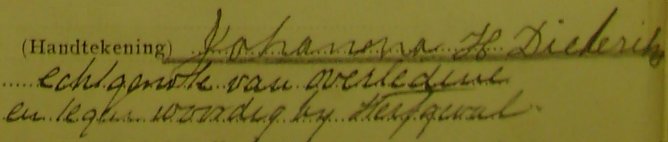 (Handtekening) Johanna H Diederik
echtgenote van overledene
en tegen woordig by sterfgeval